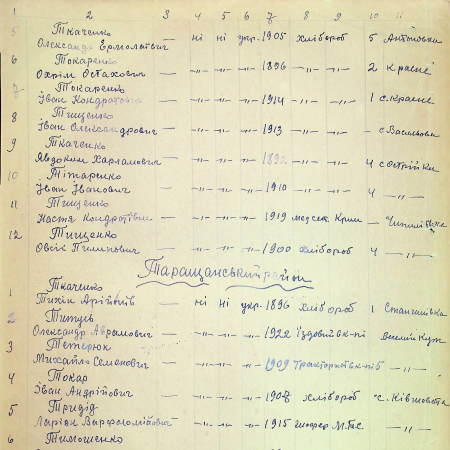 1 2 3 4 5 6 7 8 9 10 11
5 Ткаченко
Олександр Ермолаївич — ні ні укр. 1905 хлібороб 5 Антонівка
6 Токаренко
Охрім Остахович — -"- -"- -"- 1896 -"- -"- 2 Красне
7 Токаренко
Іван Кондратович — -"- -"- -"- 1914 -"- -"- 1 с. Красне
8 Тищенко
Іван Олександрович — -"- -"- -"- 1913 -"- -"- с
9 Ткаченко
Явдоким Харламович — -"- -"- -"- -"- -"- 4 с. Острійки
10 Мітаренко
Іван Іванович — -"- -"- -"- 1910 -"- -"- 4 -"-
11 Тищенко
Настя Кондратівна — -"- -"- -"- 1919 медсес. —
12 Тищенко
Овсій Пилипович — -"- -"- -"- 1900 хлібороб 4 -"-
Таращанський район
1 Ткаченко
Тихін — ні ні укр. 1896 хлібороб 1 Станишівка
2
Олександр Аврамович — -"- -"- -"- 1922 Веселий Кут
3 Тетерюк
Михайло Семенович — -"- -"- -"- 1909 -"-
4 Токар
Іван Андрійович — -"- -"- -"- хлібороб с. Ківшовата
5 Тридід
Ларіон — -"- -"- -"- 1915 шофер М.Т.С. -"-
6 Тимошенко